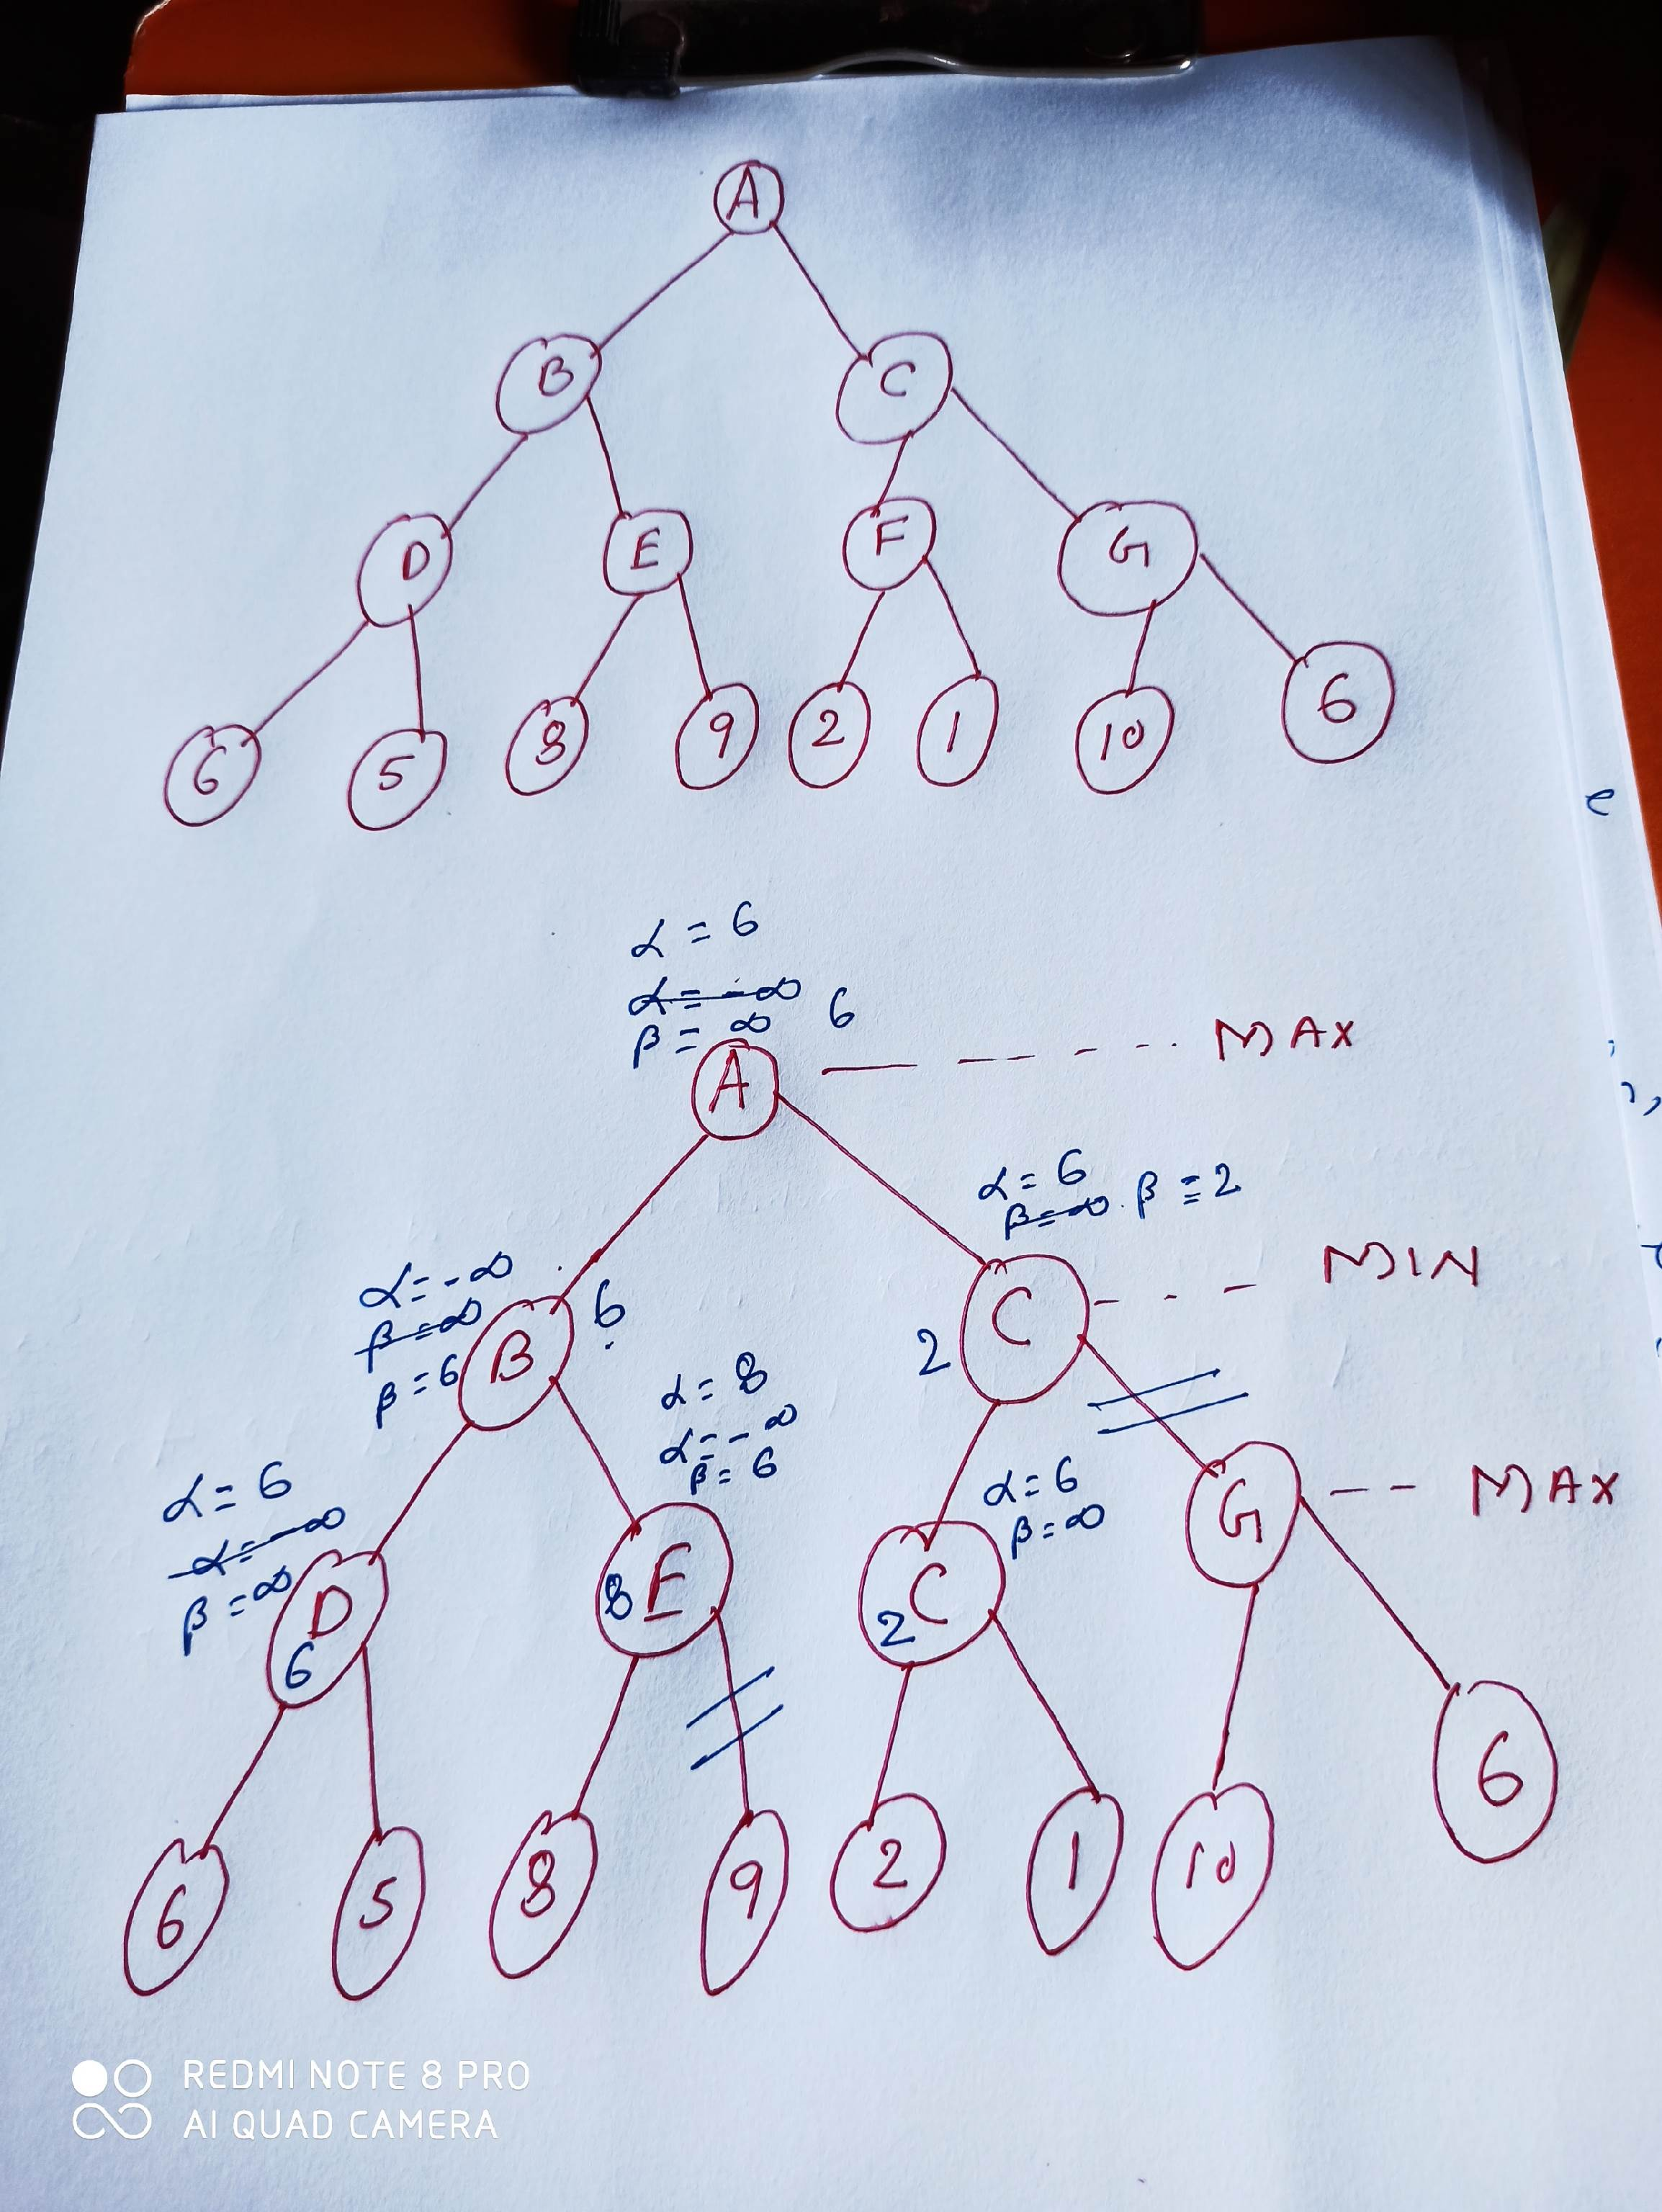 A
B C
D E F G
6 5 8 9 2 1 10 6
α = 6
α = -∞
β = ∞ 6
A MAX
α = 6
β = ∞ β = 2
C MIN
2
α = -∞
β = ∞
β = 6
B 6
α = 8
α = -∞
β = 6
α = 6
α = -∞
β = ∞
D
6
8 E
α = 6
β = ∞
C
2
G MAX
6 5 8 9 2 1 10 6
REDMI NOTE 8 PRO
AI QUAD CAMERA